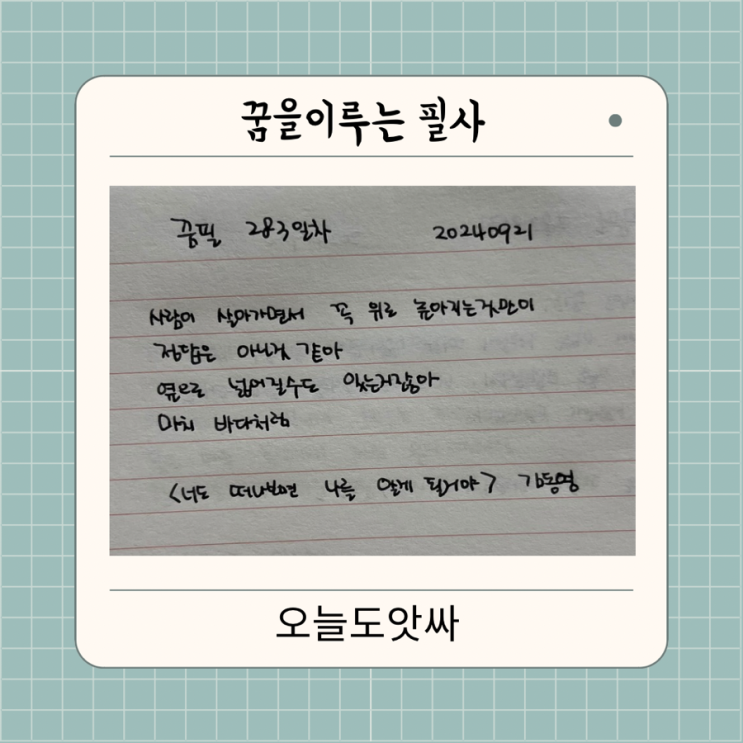 꿈을이루는 필사
꿈필 283일차 20240921
사람이 살아가면서 꼭 위로 높아지는것만이
정답은 아닌것 같아
옆으로 넓어질수도 있는거잖아
마치 바다처럼
<너도 떠나보면 나를 알게 될거야> 김동영
오늘도앗싸